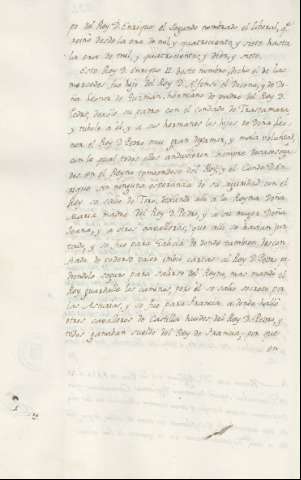 po del Rey D. Enrique el segundo nombrado el liberal, qᵉ
reinó desde la era de mil y quatrocientos y siete hasta
la era de mil y quatrocientos y diez y siete.
Este Rey D. Enrique II deste nombre, dicho el de las
mercedes, fue hijo del Rey D. Alfonso el Onceno, y de Do-
ña Leonor de Guzmán, hermano de padre del Rey D.
Pedro, dexole su padre con el condado de Trastamara,
y tubole á él, y á sus hermanos los hijos de Doña Leo-
nor el Rey D. Pedro muy gran y mala voluntad,
con la qual todos ellos anduvieron siempre
dos en el Reyno temiendose del Rey, y el Conde D. En-
rique con ninguna esperanza de su con el
Rey se salio de Toro, dexando alli a la Reyna Doña
Maria madre del Rey D. Pedro, y a su muger Doña
Juana, y a otros cavalleros, que alli se havian jun-
tado, y se fue para Galicia de donde tambien descon-
fiado de poderse valer imbió cartas al Rey D. Pedro
seguro para salirse del Reyno, mas mandó el
Rey guardalle los caminos, pero él se salió secreto por
las Asturias, y se fue para Francia a donde halló
otros cavalleros de Castilla huidos del Rey D. Pedro, y
todos ganaban sueldo del Rey de Francia; por que
en